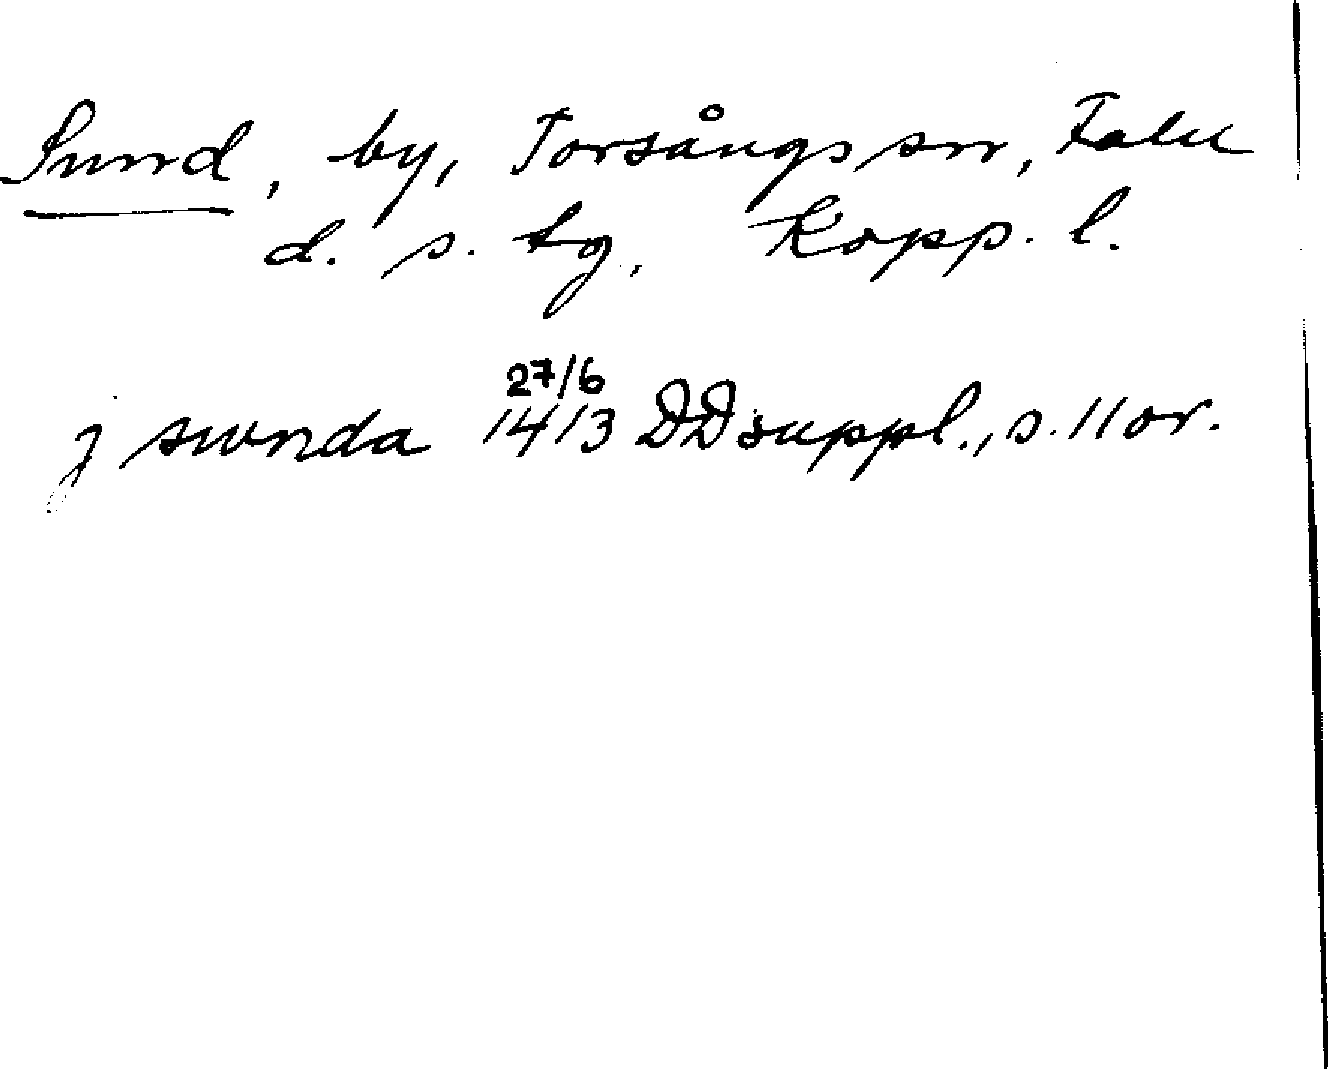 Sund, by, Torsångs sn, Falu
d. s. tg, Kopp. l.
27/6
j swnda 1413 DDsuppl., s. 11 or.